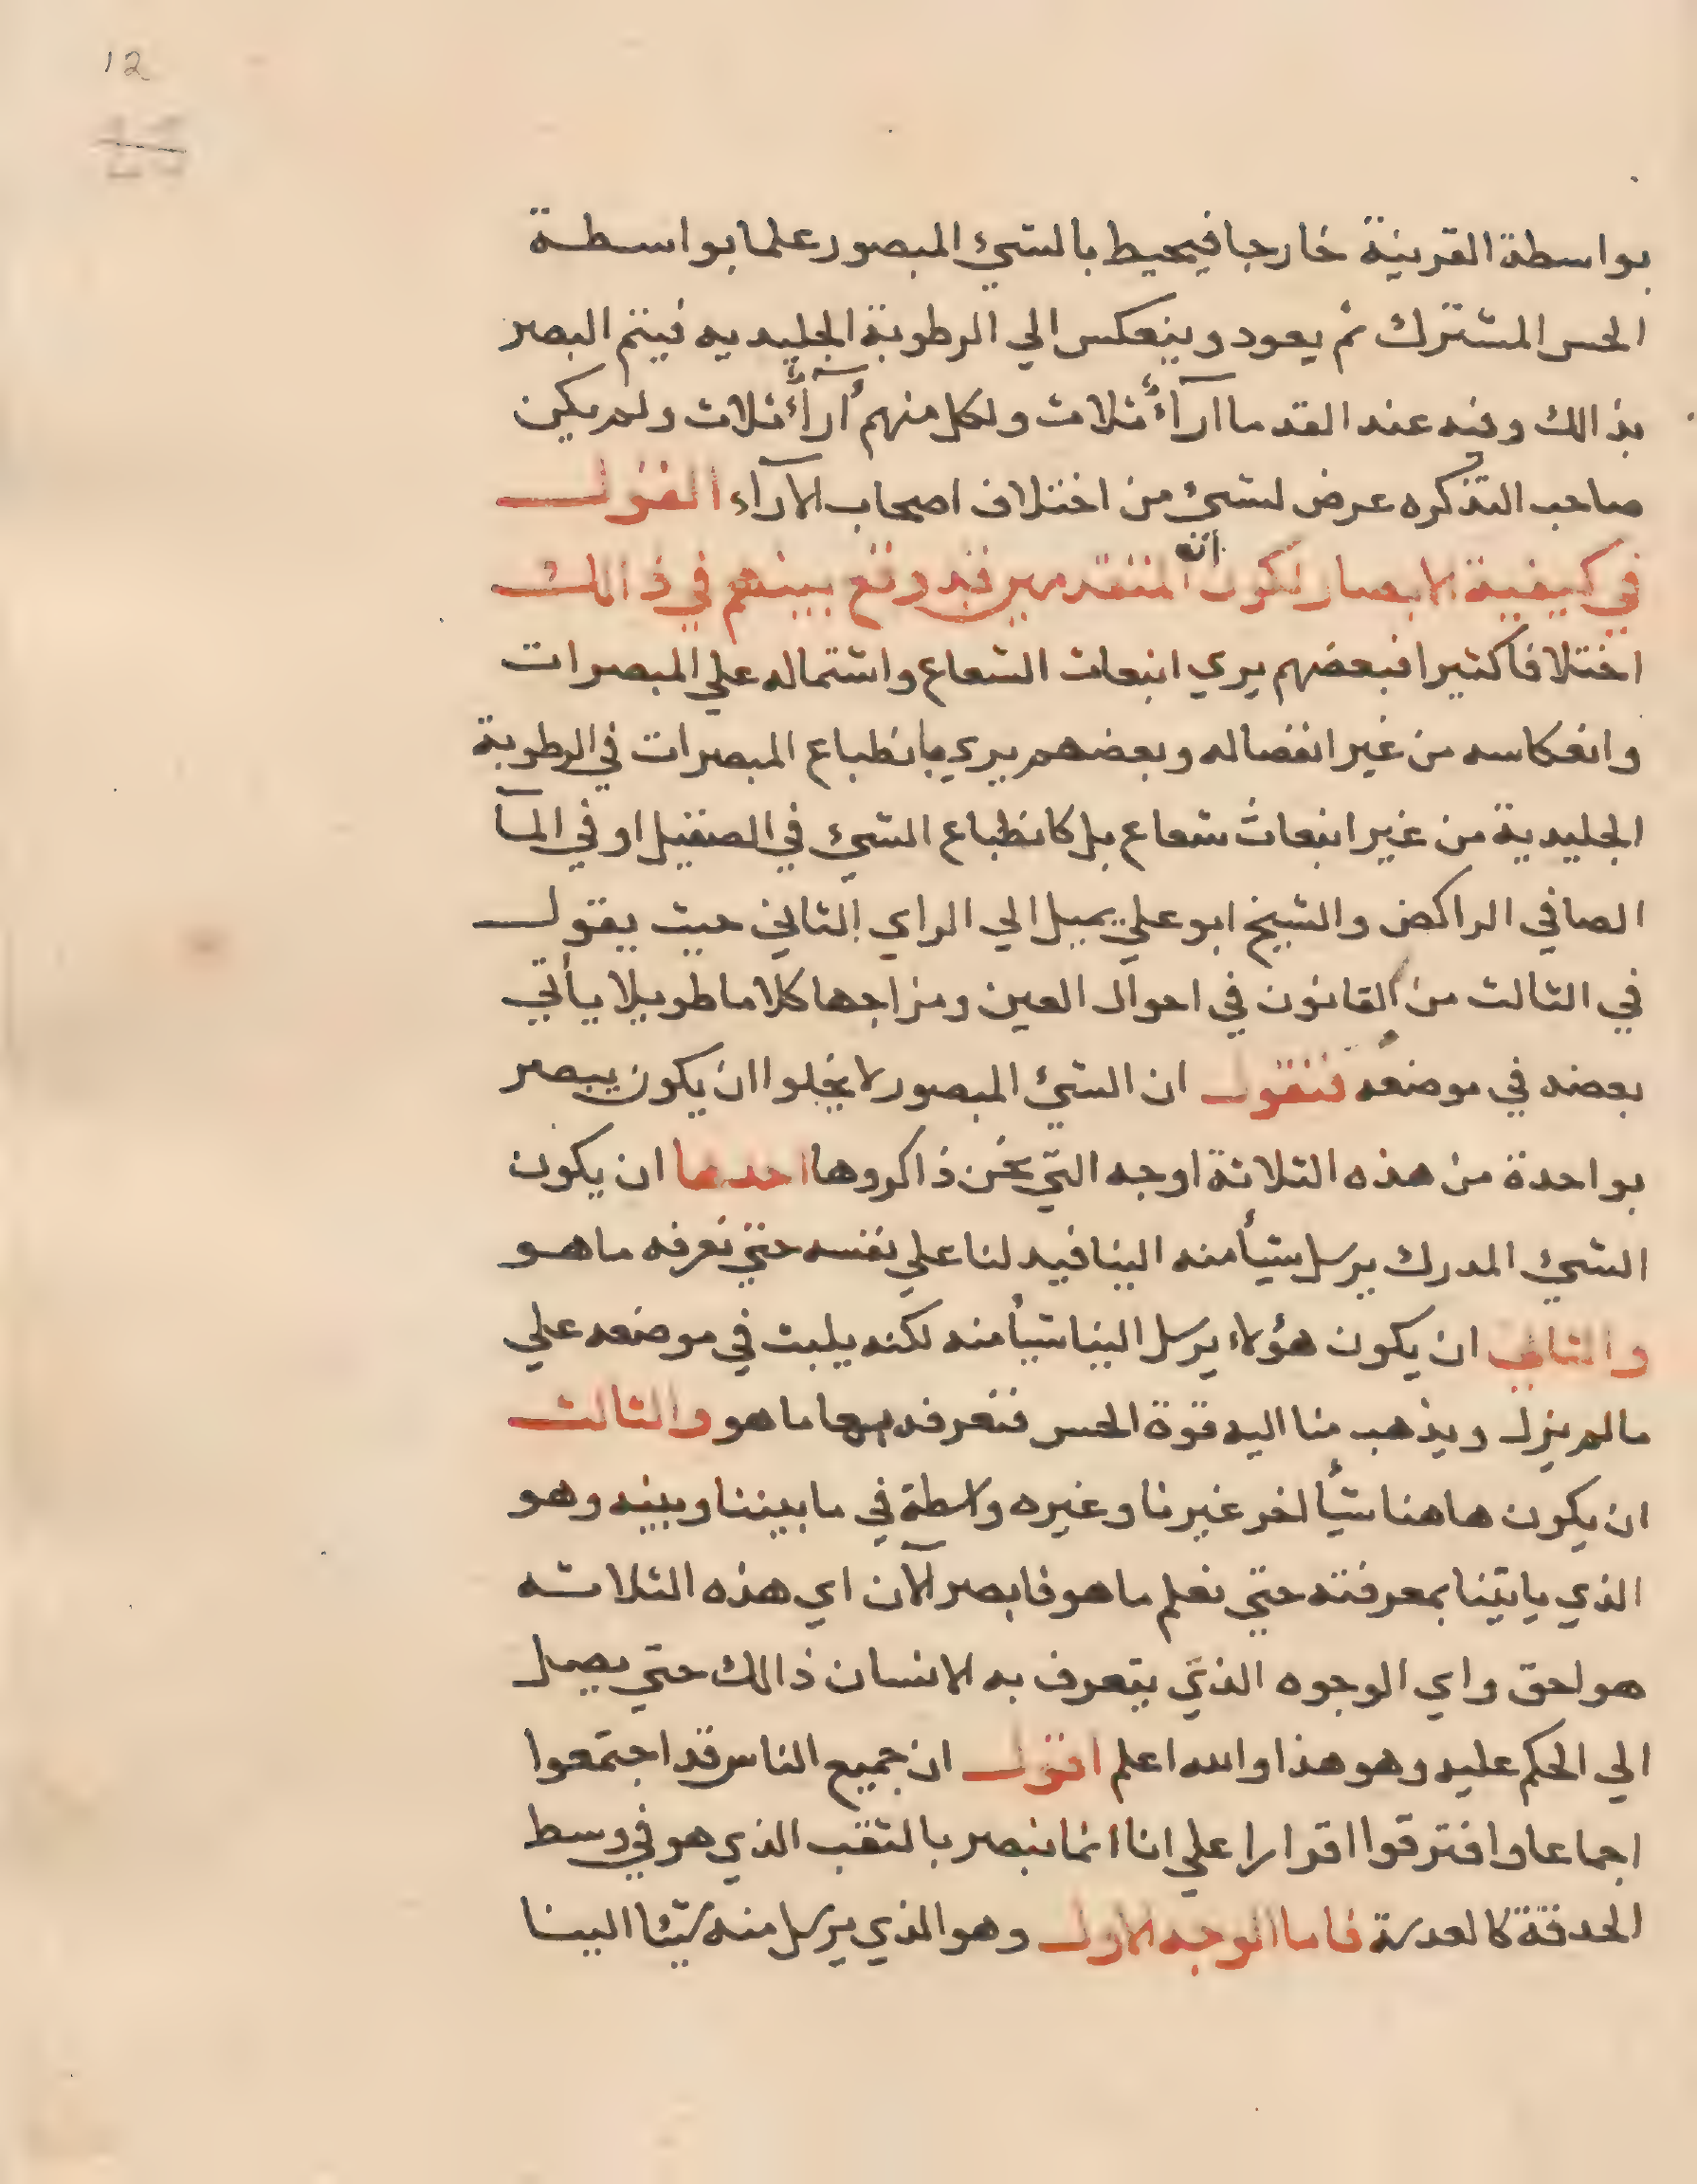 12
بواسطة القرينة خارجا فيحيط بالشيء المبصور علما بواسطة
الحس المشترك ثم يعود وينعكس الي الرطوبة الجليديه فيتم البصر
بذالك وفيه عند القدما آراءٌ ثلاث ولكل منهم آراءٌ ثلاث ولم يكن
صاحب التذكره عرض لشيء من اختلاف اصحاب الآراء القول
في كيفية الابصار لكون ان المتقدمين قد وقع بينهم في ذالك
اختلافا كثيرا فبعضهم يري انبعاث الشعاع واشتماله علي المبصرات
وانعكاسه من غير انفصاله وبعضهم يري بانطباع المبصرات في الرطوبة
الجليدية من غير انبعاث شعاع بل كانطباع الشيء في الصقيل او في المآ
الصافي الراكض والشيخ ابو علي يميل الي الراي الثاني حيث يقول
في الثالث من القانون في احوال العين ومزاجها كلاما طويلا يأتي
بعضه في موضعه فنقول ان الشيء المبصور لا يخلوا ان يكون يبصر
بواحدة من هذه الثلاثة اوجه التي نحن ذاكروها احدها ان يكون
الشيء المدرك يرسل شيأ منه الينا فيدلنا علي نفسه حتي نعرفه ما هو
والثاني ان يكون هؤلاء يرسل الينا شيأ منه لكنه يلبث في موضعه علي
ما لم يزل ويذهب منا اليه قوة الحس فنعرفه بها ما هو والثالث
ان يكون هاهنا شيأ اخر غيرنا وغيره واسطة في ما بيننا وبينه وهو
الذي ياتينا بمعرفته حتي نعلم ما هو فابصر الآن اي هذه الثلاثه
هو احق واي الوجوه الذي يتعرف به الانسان ذالك حتي يصل
الي الحكم عليه وهو هذا والله اعلم اقول ان جميع الناس قد اجتمعوا
اجماعا وافترقوا اقرارا علي انا انما نبصر بالثقب الذي هو في وسط
الحدقة كالعدسة فاما الوجه الاول وهو الذي يرسل منه شيئا الينا